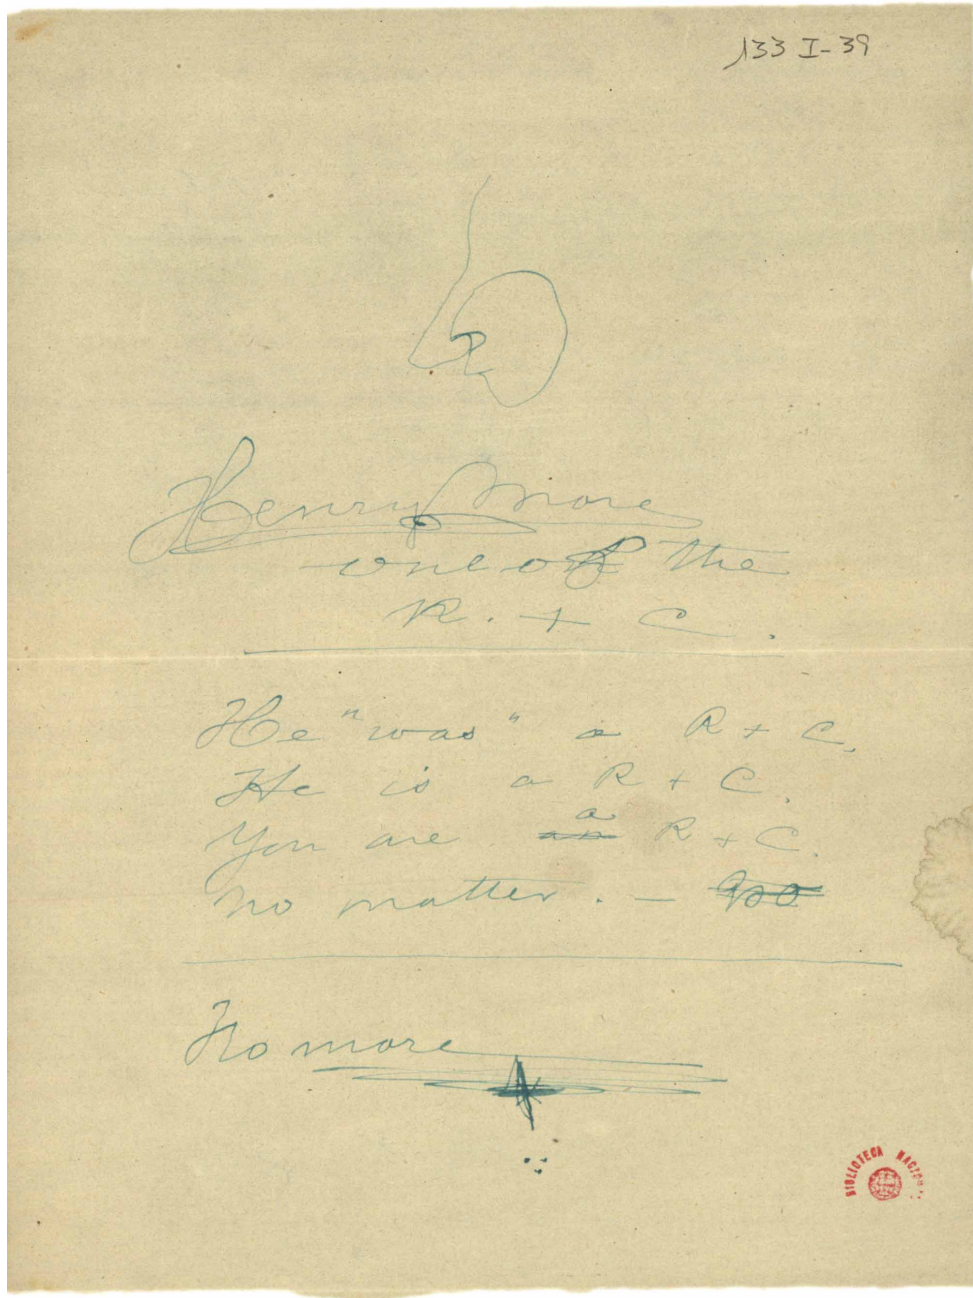 133 I-39
Henry More
one of the
R. + C.
He "was" a R + C.
He is a R + C.
You are an a R + C.
No matter. —
No more
BIBLIOTECA NACIONAL